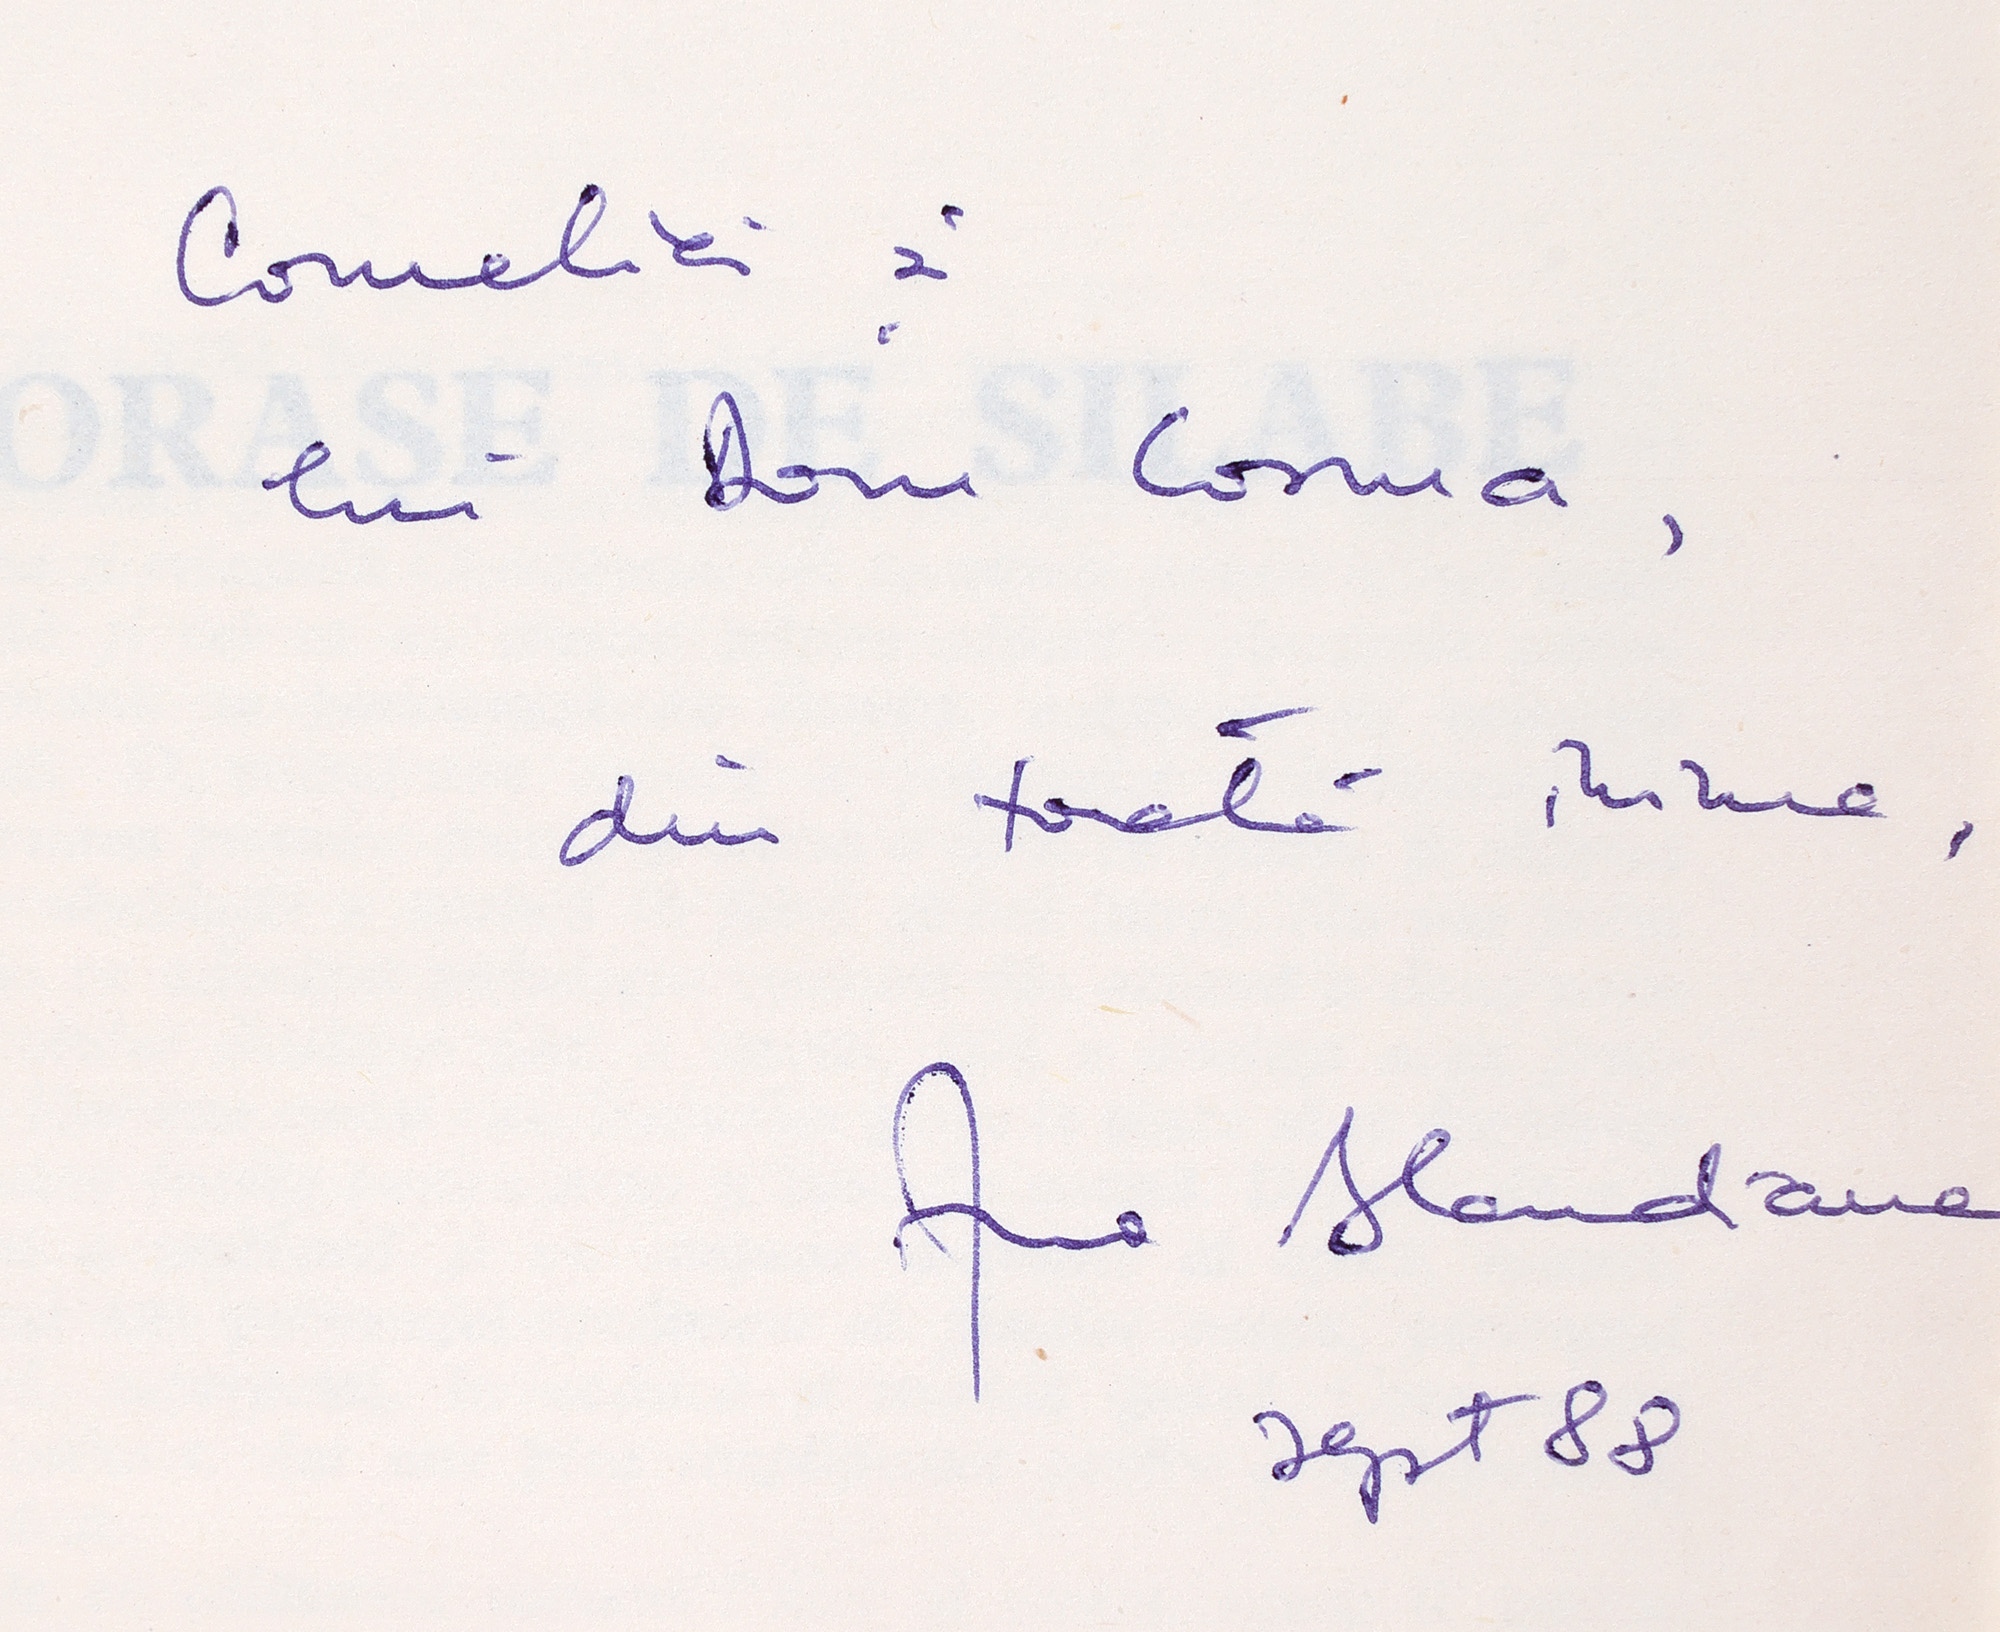 Corneliei și
ORAȘE DE SILABE
lui Dom Cosma,
din toată inima,
Ana Blandiana
sept 88